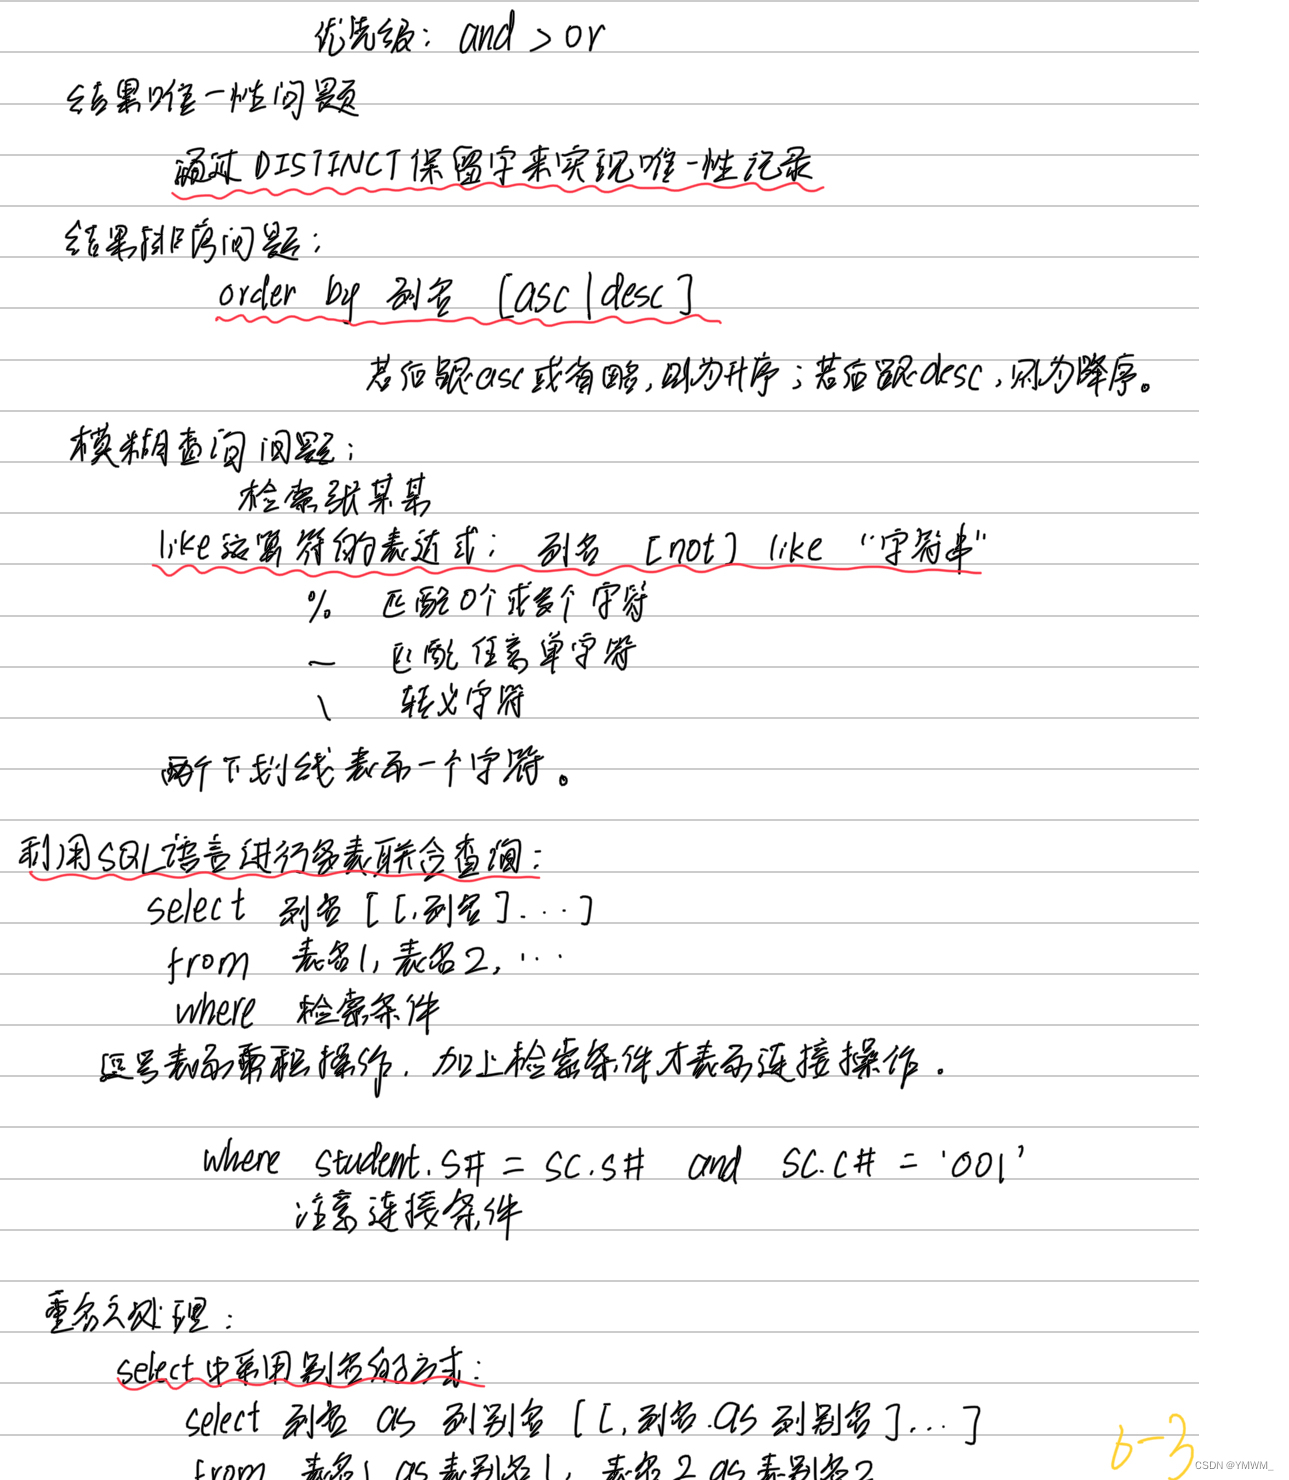 优先级: and > or
结果唯一性问题
通过DISTINCT保留字来实现唯一性记录
结果排序问题:
order by 列名 [asc|desc]
若后跟asc或省略,则为升序;若后跟desc,则为降序。
模糊查询问题:
检索张某某
like运算符的表达式: 列名 [not] like "字符串"
% 匹配0个或多个字符
_ 匹配任意单字符
\ 转义字符
两个下划线表示一个字符。
利用SQL语言进行多表联合查询:
select 列名[[,列名]...]
from 表名1,表名2,...
where 检索条件
逗号表示乘积操作,加上检索条件才表示连接操作.
where student.s# = sc.s# and sc.c# = '001'
注意连接条件
重名之处理:
select中采用别名的方式:
select 列名 as 列别名 [[,列名.as 列别名]...]
from 表名1 as 表别名1, 表名2 as 表别名2
6-3
CSDN @YMWM_